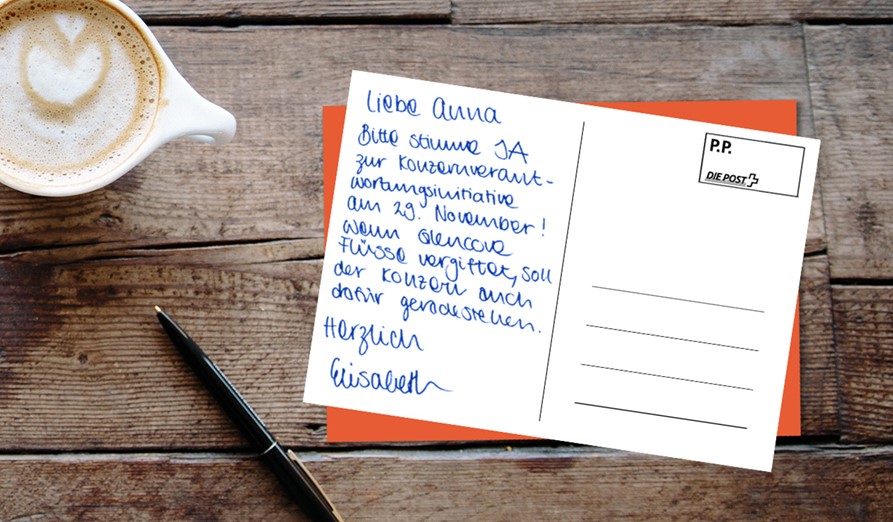 Liebe Anna
Bitte stimme JA
zur Konzernverant-
wortungsinitiative
am 29. November!
Wenn Glencore
Flüsse vergiftet, soll
der Konzern auch
dafür geradestehen.
Herzlich
Elisabeth
P.P.
DIE POST